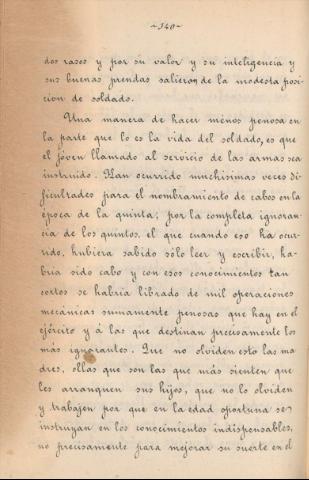 ~140~
dos rasos y por su valor y su inteligencia y
sus buenas prendas salieron de la modesta posi
cion de soldado.
Una manera de hacer ménos penosa en
la parte que lo es la vida del soldado, es que
el jóven llamado al servicio de las armas sea
instruido. Han ocurrido muchísimas veces di
ficultades para el nombramiento de cabos en la
época de la quinta; por la completa ignoran
cia de los quintos, el que cuando eso ha ocur
rido, hubiera sabido sólo leer y escribir, ha
bria sido cabo y con esos conocimientos tan
cortos se habria librado de mil operaciones
mecánicas sumamente penosas que hay en el
ejército y á las que destinan precisamente los
más ignorantes. Que no olviden esto las ma
dres, ellas que son las que más sienten que
les arranquen sus hijos, que no lo olviden
y trabajen por que en la edad oportuna se
instruyan en los conocimientos indispensables,
no precisamente para mejorar su suerte en el